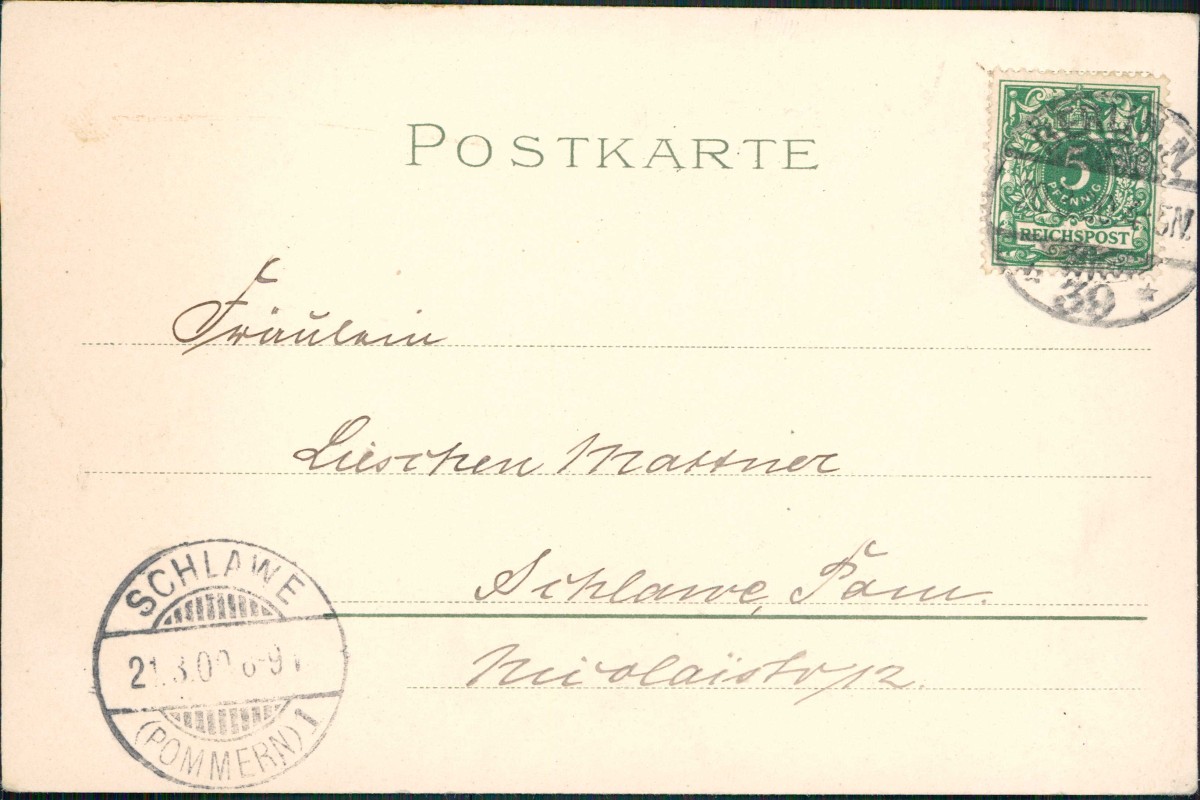 POSTKARTE
5
PFENNIG
REICHSPOST
BERLIN.N.
5N.
39
Fräulein
Lieschen Mattner
Schlawe, Pom.
Nicolaistr 12.
SCHLAWE
21.3.00
(POMMERN) 1